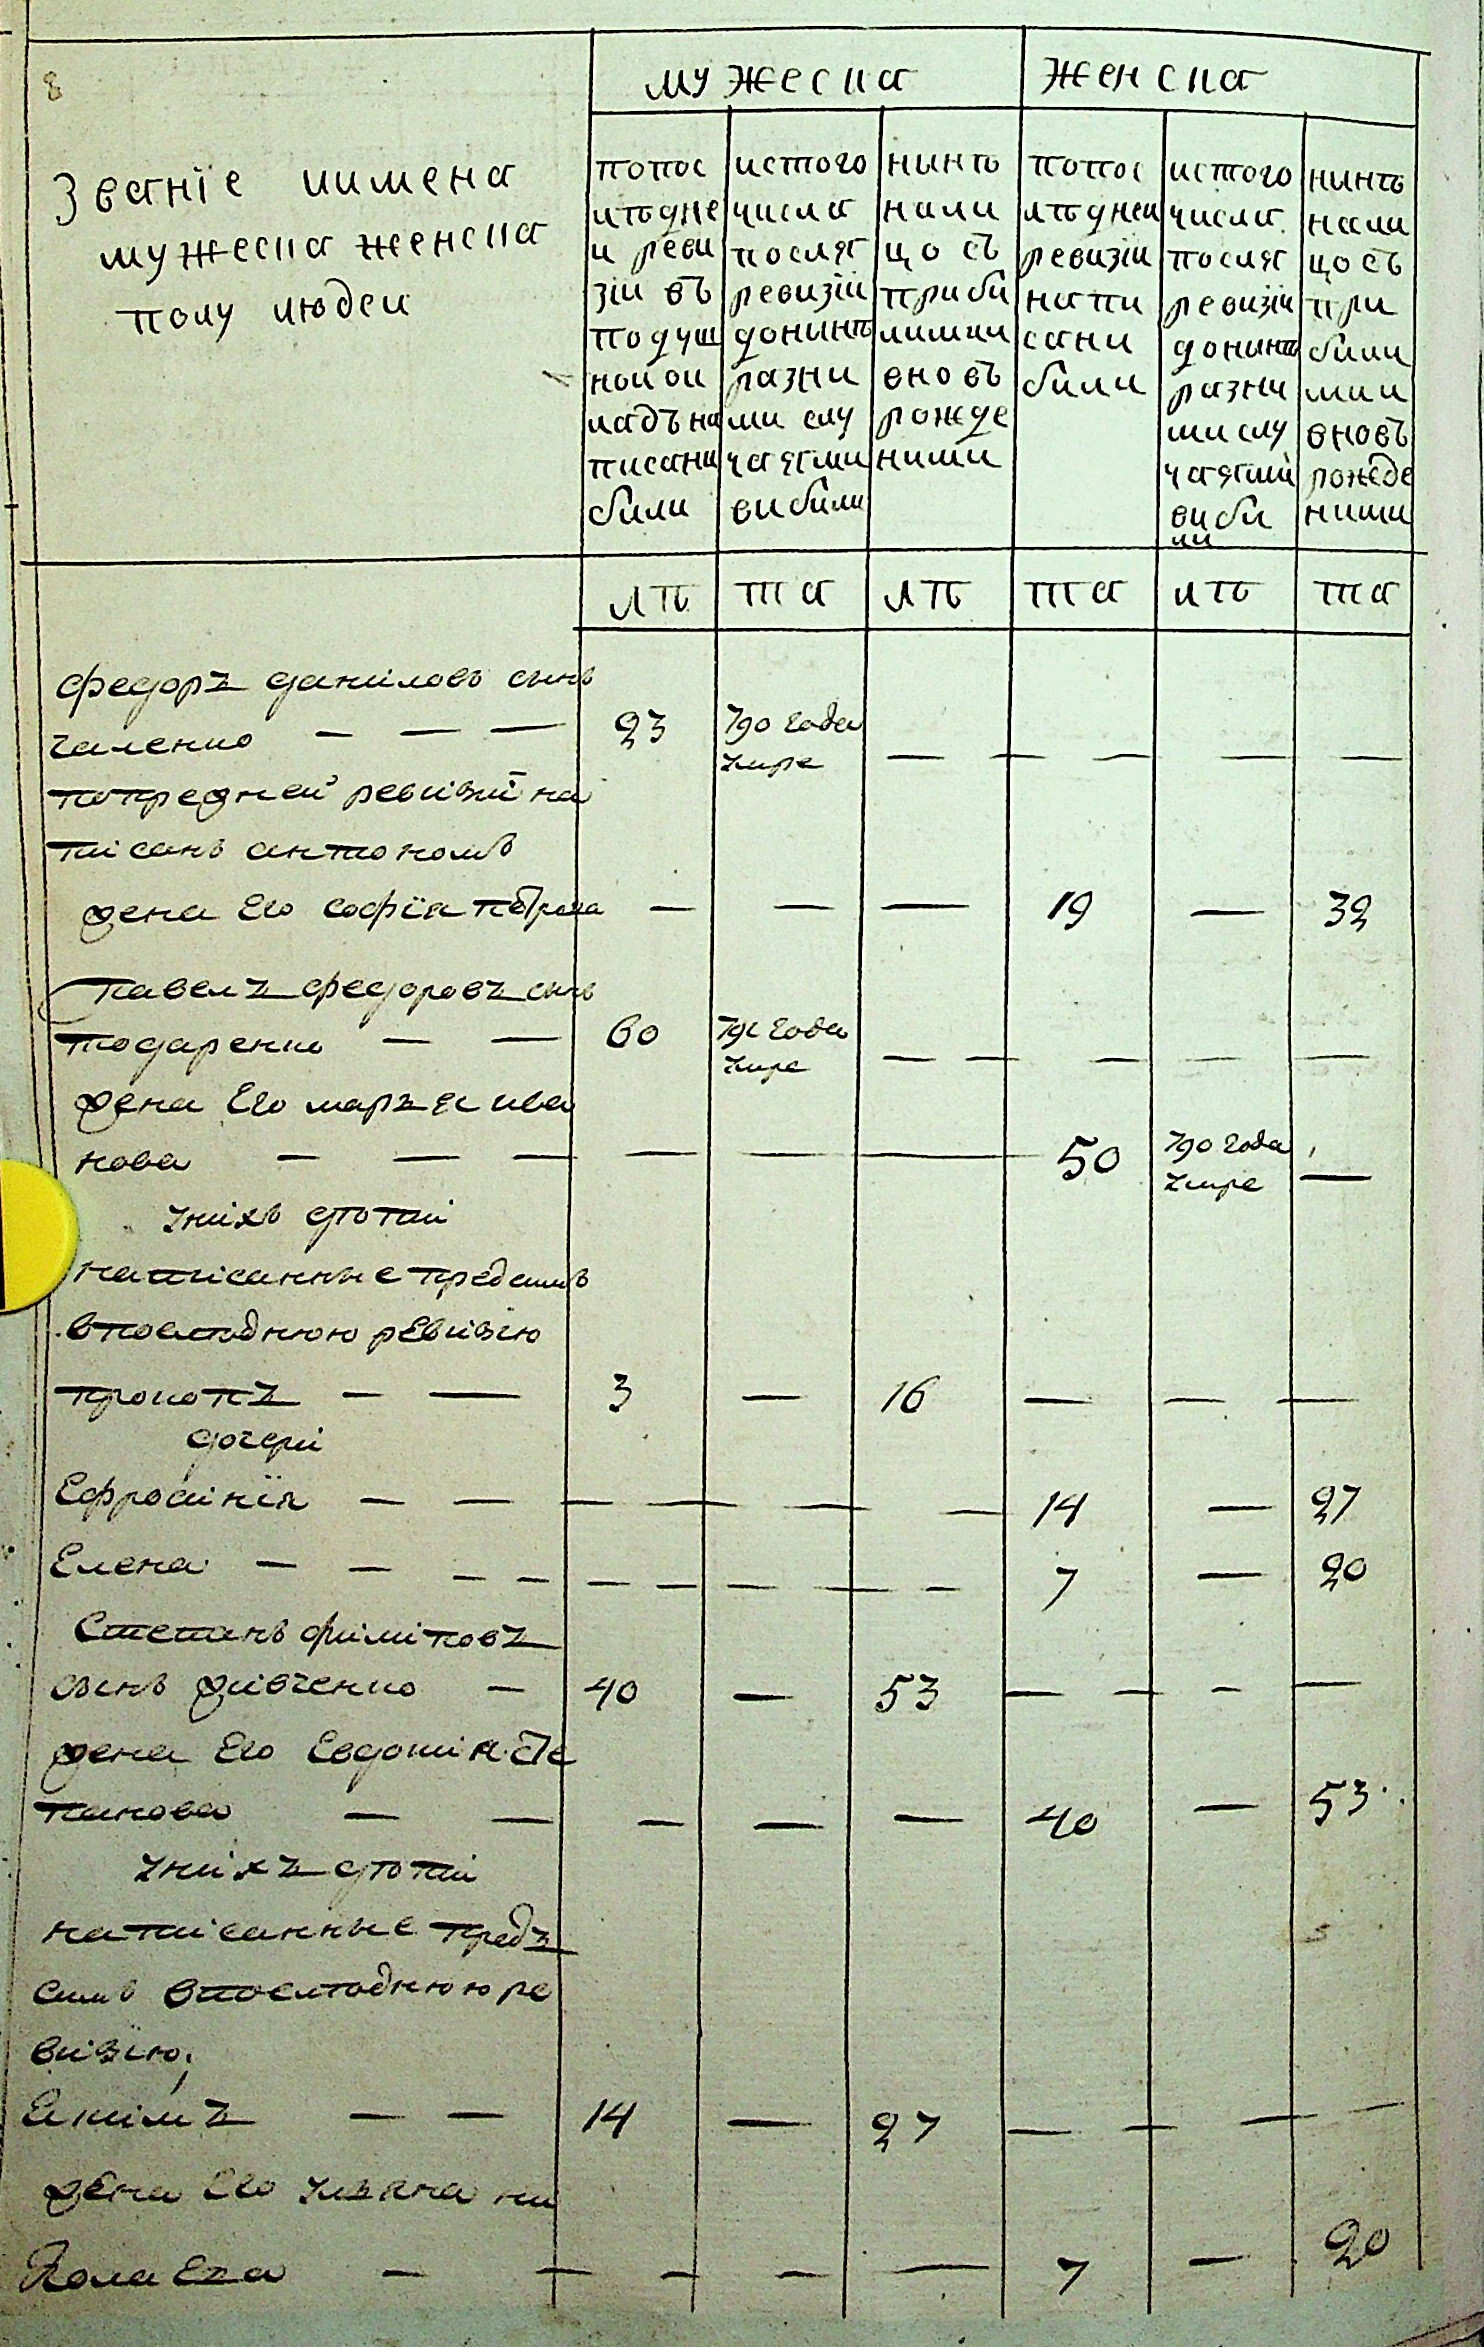 8
мужеска женска
Званіе иимена
мужеска женска
полу людеи
попос
лѣдне
и реви
зіи въ
подуш
нои ок
ладъ на
писани
били
истого
числа
посля
ревизіи
донынѣ
разни
ми слу
чаями
вибили
нынѣ
нали
цо съ
приби
лими
вновъ
рожде
ними
попос
лѣднеи
ревизіи
напи
сани
били
истого
числа
посля
ревизіи
донынѣ
разни
ми слу
чаями
виби
ли
нинѣ
нали
цо съ
при
били
ми и
вновъ
рожде
ними
лѣ та лѣ та лѣ та
федоръ даниловъ сынъ
галенко — — — 23 790 года — — — — —
умре
попредней ревизіи на
писанъ антономъ
жена его софія петрова — — — 19 — 32
павелъ федоровъ сынъ
подаренко — — 60 791 года — — — — —
умре
жена его марья ива
нова — — — — — — 50 790 года —
умре
унихъ дѣти
написанные предсимъ
впослѣднюю ревизію
прокопъ — — 3 — 16 — — —
дочери
Ефросинія — — — — — — 14 — 27
Елена — — — — — — — — — 7 — 20
Степанъ филиповъ
сынъ дивченко — 40 — 53 — — — —
жена его Евдокия сте
панова — — — — — 40 — 53
унихъ дѣти
написанные предъ
симъ впослѣднюю ре
визію;
Екимъ — — 14 — 27 — — — —
жена его улияна ни
колаева — — — — — 7 — 20